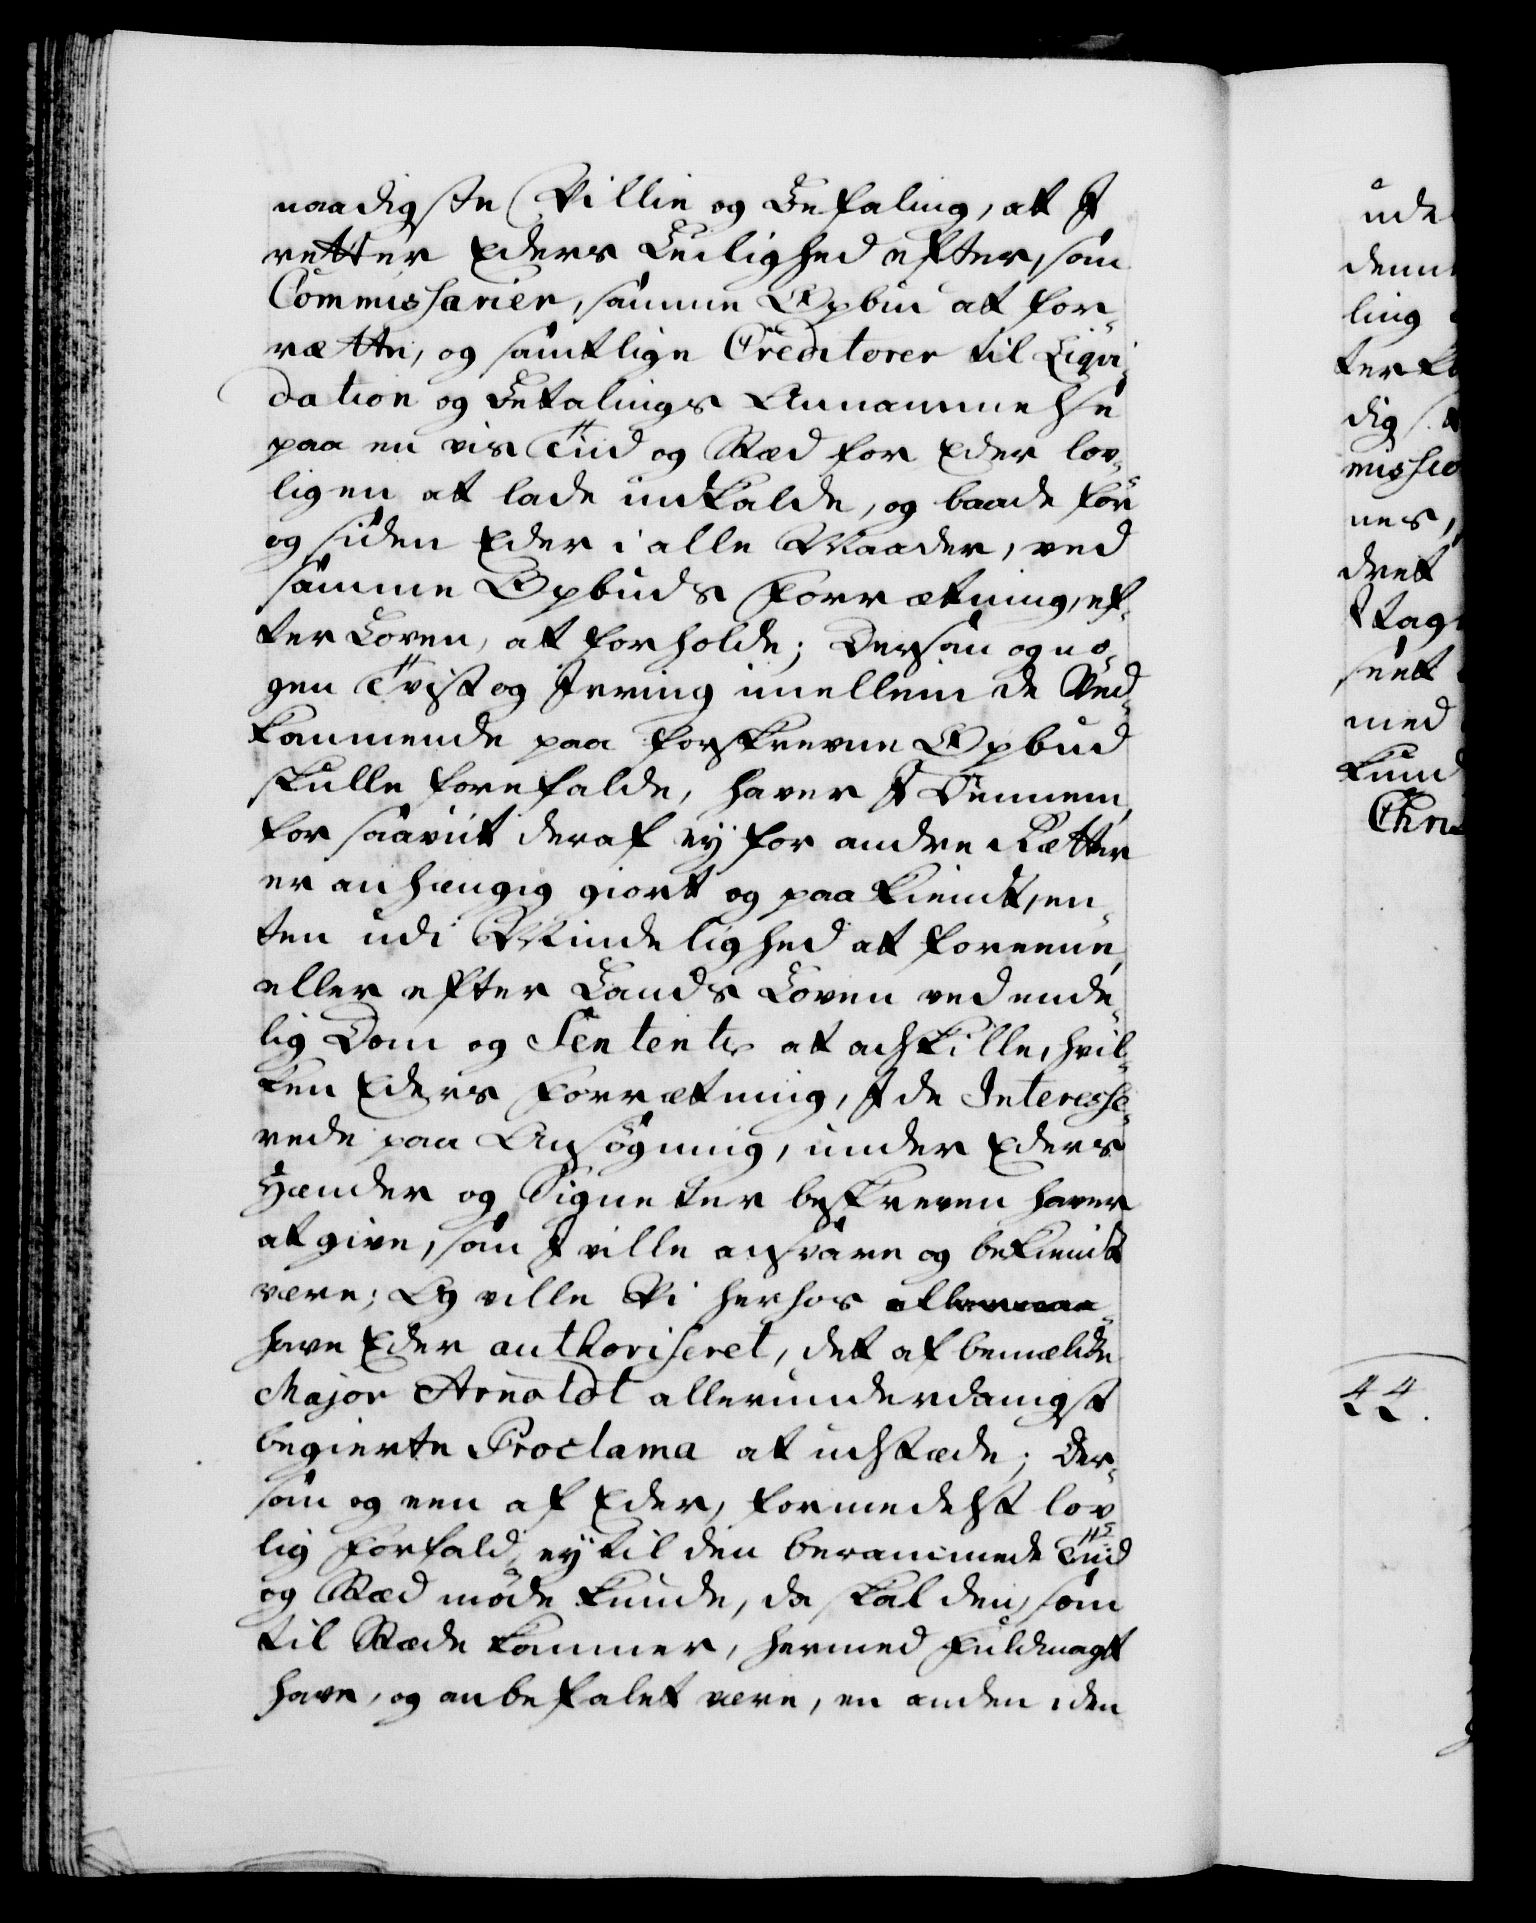 naadigste Villie og Befaling, at I
retter Eders Leilighed efter, som
Commissarier, samme Opbud at for-
rætte, og samtlige Creditorer til Liqvi-
dation og Betalings Annammelse
paa en vis Tiid og Stæd for Eder lov-
ligen at lade indkalde, og baade før
og siden Eder i alle Maader, ved
samme Opbuds Forrætning, ef-
ter Loven, at forholde; Dersom og no-
gen Tvist og Irring imellem de Ved-
kommende paa forskrevne Opbud
skulle forefalde, haver I dennem,
for saaviit deraf ey for andre Rætter
er anhængig giort og paakiendt, en-
ten udi Mindelighed at foreene,
eller efter Lands Loven ved ende-
lig Dom og Sententz at adskille, hvil-
ken Eders Forrætning, I de Interesse-
rede paa Ansøgning, under Eders
Hænder og Signeter beskreven haver
at give, som I ville ansvare og bekiendt
være; Og ville Vi herhos
have Eder authoriseret, det af bemældte
Major Arnoldt allerunderdanigst
begierte Proclama at udstæde; Der-
som og een af Eder, formedelst lov-
lig Forfald, ey til den berammede Tiid
og Stæd møde kunde, da skal den, som
til Stæde kommer, hermed Fuldmagt
have, og anbefalet være, en anden i den
ude
denn
ling
ter
dig
missio
nes,
dret
tag
seet
med
kund
Chri
44.